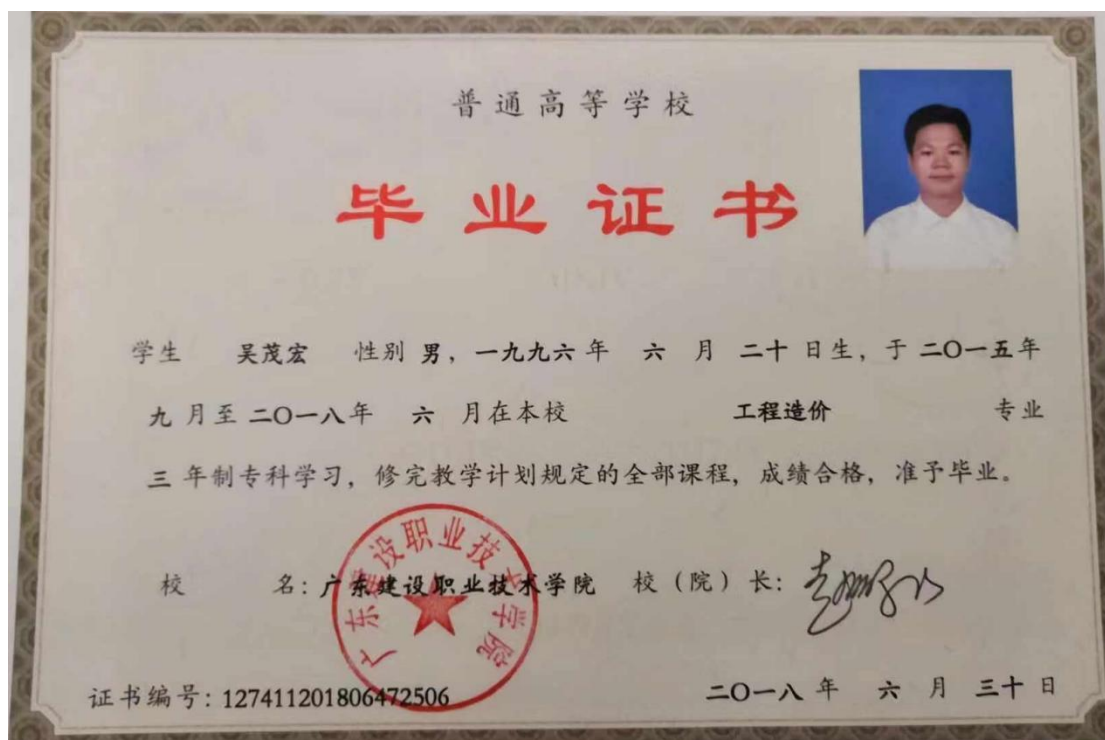 普通高等学校
毕业证书
学生 吴茂宏 性别 男，一九九六 年 六 月 二十 日生，于 二〇一五年
九 月至 二〇一八年 六 月在本校 工程造价 专业
三 年制专科学习，修完教学计划规定的全部课程，成绩合格，准予毕业。
广东建设职业技术学院
校 名：广东建设职业技术学院 校（院）长：
证书编号：127411201806472506 二〇一八 年 六 月 三十 日